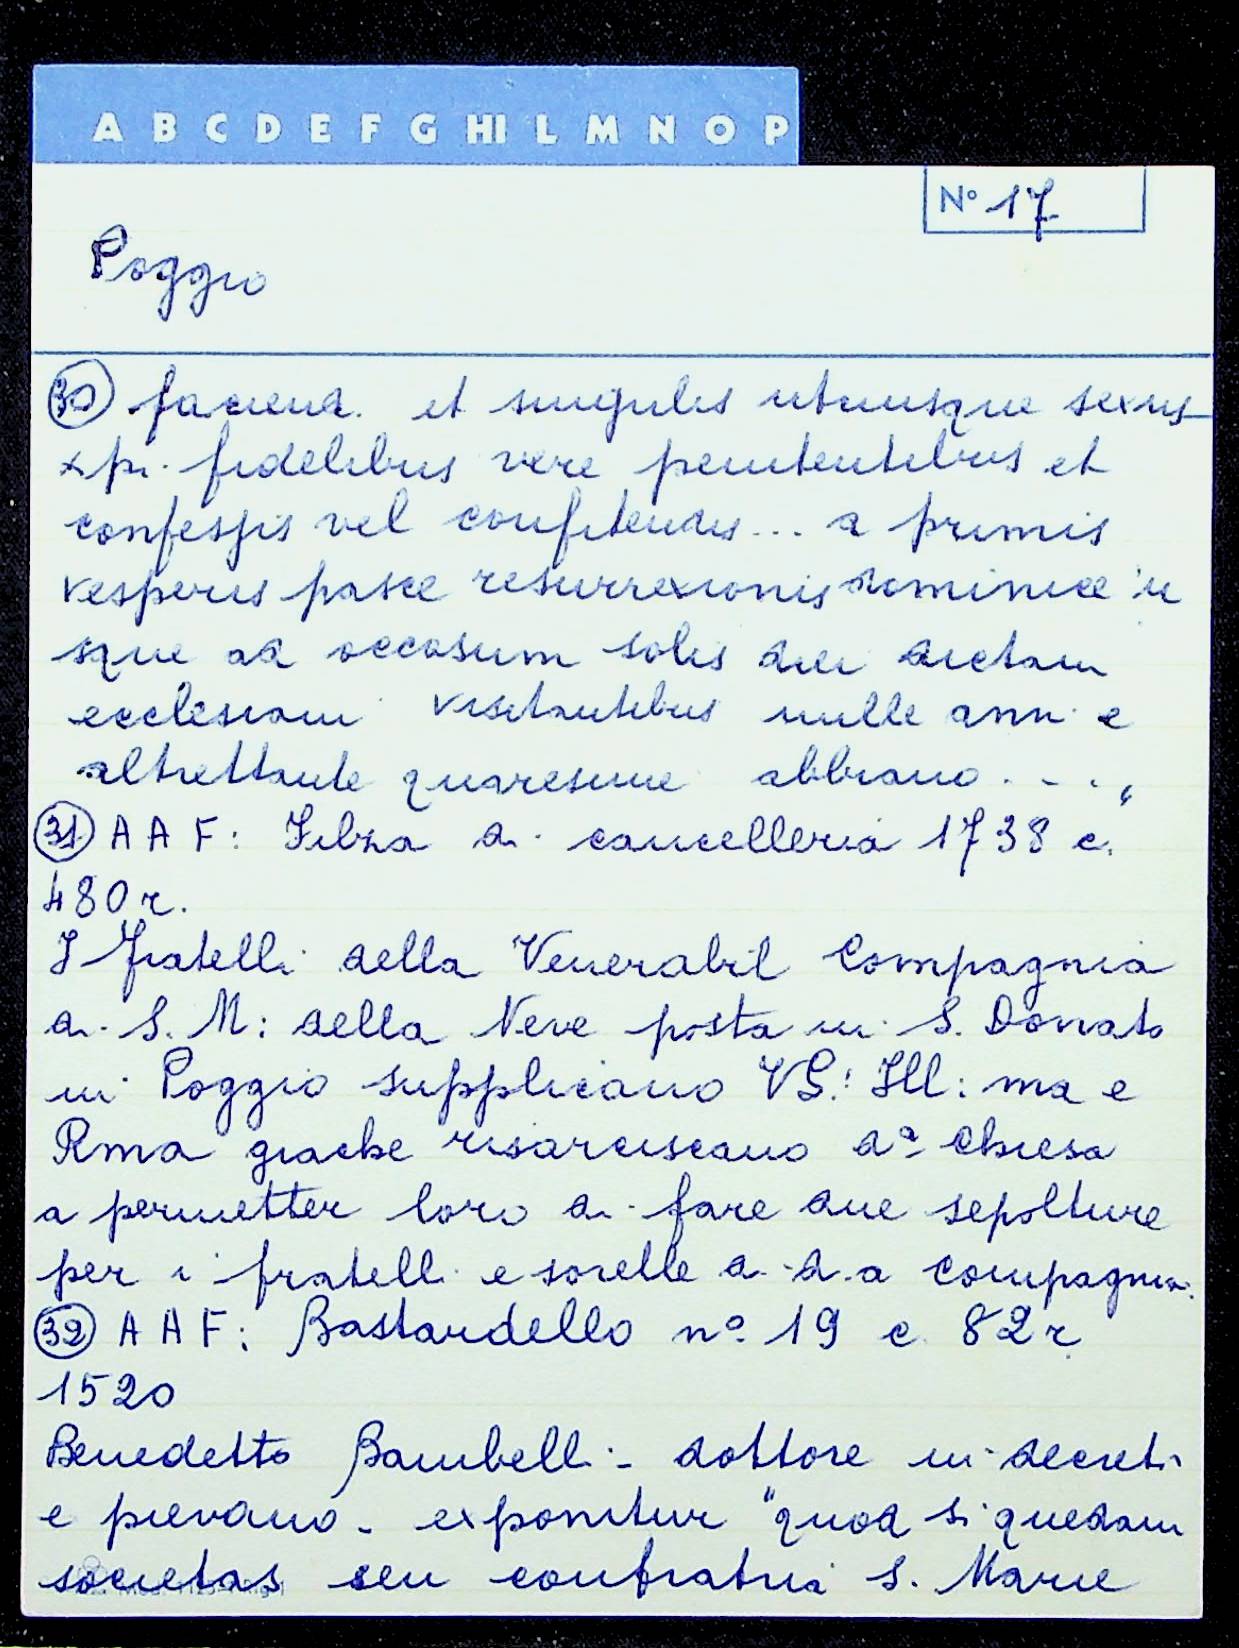 A B C D E F G HI L M N O P
N° 17
Poggio
30 faciend. et singulis utriusque sexus
xpi. fidelibus vere penitentibus et
confessis vel confitendis... a primis
vesperis pasce resurrexionis dominice u
sque ad occasum solis diei dictam
ecclesiam visitantibus mille ann. e
altrettante quaresime abbiano . - . „
31 A A F: Filza di cancelleria 1738 c.
480 r.
I Fratelli della Venerabil Compagnia
di S. M: della Neve posta in S. Donato
in Poggio supplicano VS: Ill: ma e
Rma giacke risarciscano da chiesa
a permetter loro di fare due sepolture
per i fratelli e sorelle di d.a compagnia.
32 A A F: Bastardello n° 19 c. 82 r
1520
Benedetto Bambelli - dottore in decreti
e pievano - exponitur "quod si quedam
societas seu confratria S. Marie